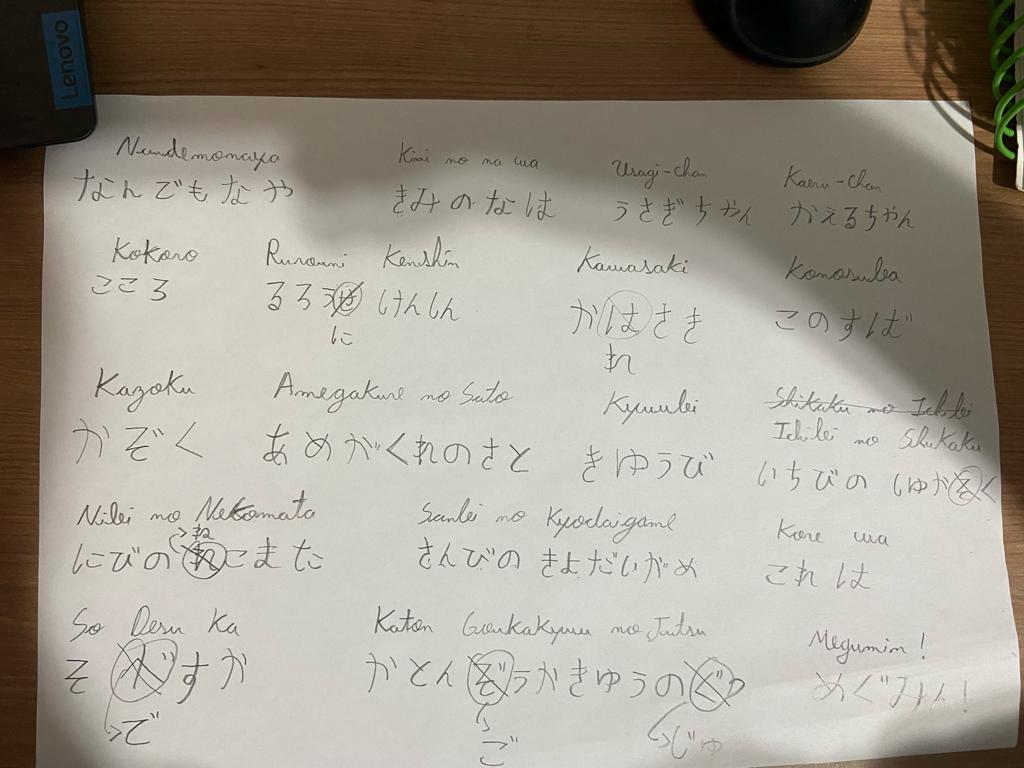 Lenovo
Nandemonaya
なんでもなや
Kimi no na wa
きみのなは
Usagi-chan
うさぎちゃん
Kaeru-chan
かえるちゃん
Kokoro
こころ
Rurouni Kenshin
るろうは けんしん
に
Kawasaki
かはさき
れ
Konosuba
このすば
Kazoku
かぞく
Amegakure no Sato
あめがくれのさと
Kyuubi
きゆうび
Shikaku no Ichibi
Ichibi no Shukaku
いちびの しゆかく
Nibi no Nekomata
ね
にびのれこまた
Sanbi no Kyodaigame
さんびの きよだいがめ
Kore wa
これは
So Desu Ka
そすか
で
Katon Goukakyuu no Jutsu
かとんぞうかきゆうのぐつ
ご
じゅ
Megumin!
めぐみん!